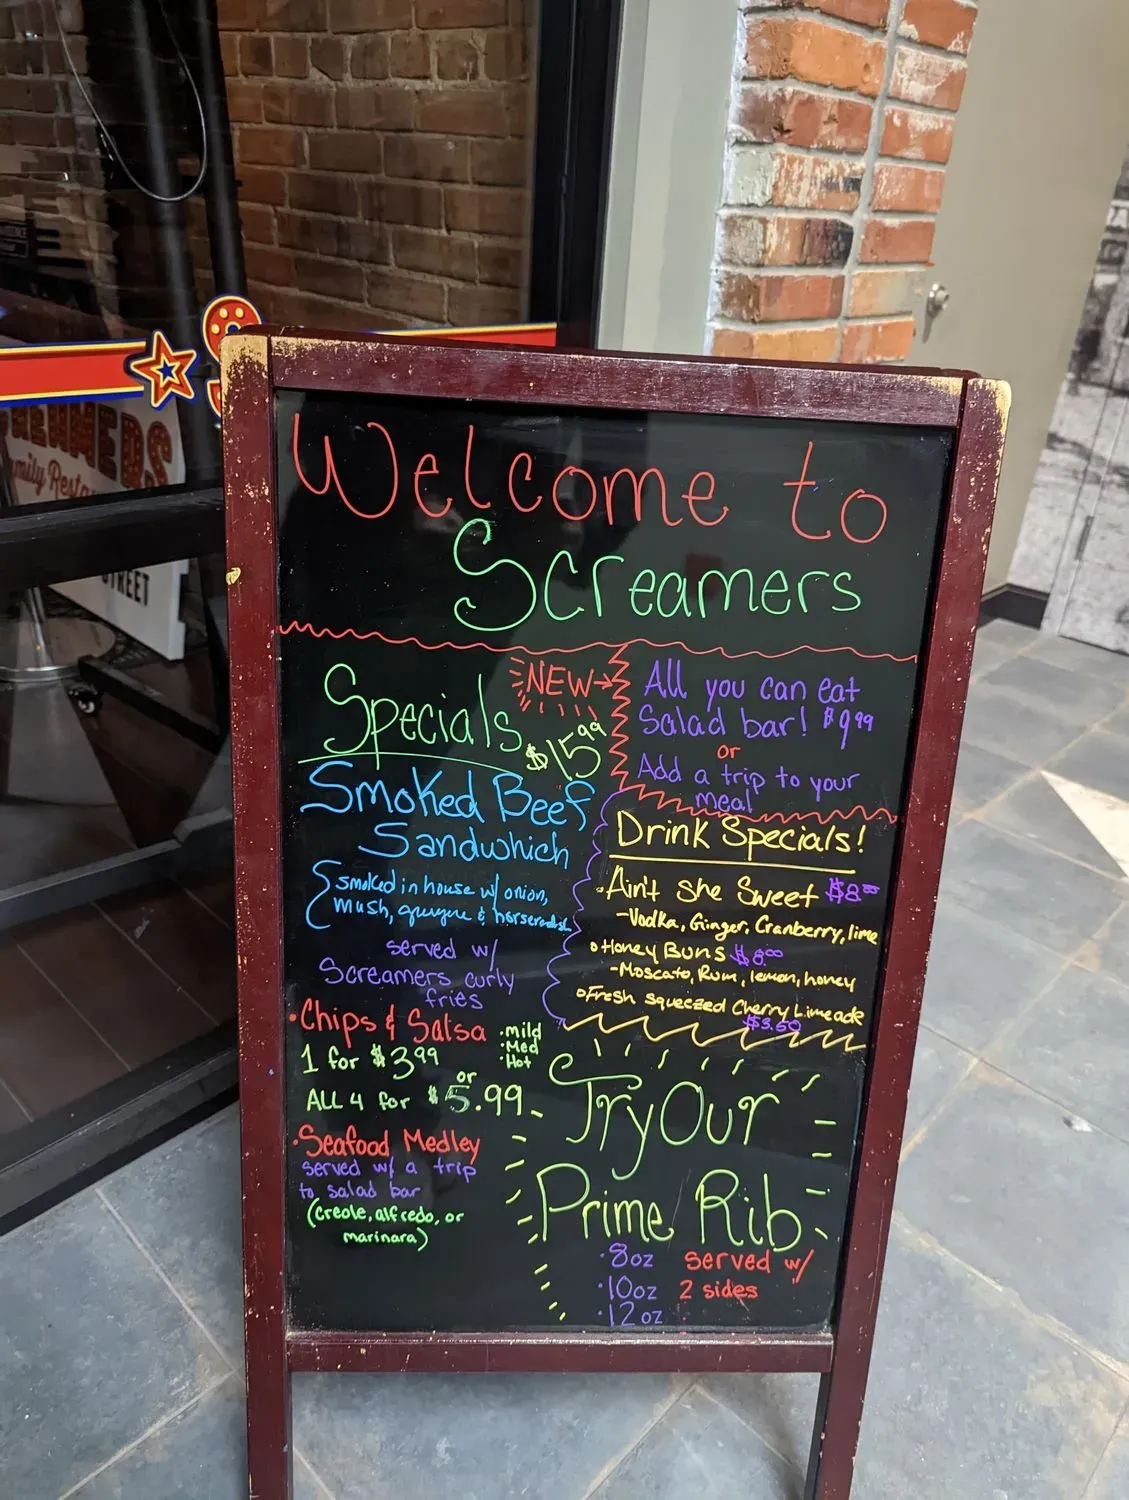 Welcome to
Screamers
Specials
$15.99
Smoked Beef
Sandwhich
smoked in house w/ onion,
mush, gruyere & horseradish
served w/
Screamers curly
fries
•Chips & Salsa
•mild
•Med
•Hot
1 for $3.99
or
ALL 4 for $5.99
•Seafood Medley
served w/ a trip
to salad bar
(creole, alfredo, or
marinara)
NEW→
All you can eat
Salad bar! $9.99
or
Add a trip to your
meal
Drink Specials!
•Ain't she Sweet $8.00
-Vodka, Ginger, Cranberry, lime
•Honey Buns $8.00
-Moscato, Rum, lemon, honey
•Fresh squeezed Cherry Limeade
$3.50
Try Our
Prime Rib
•8oz
•10oz
•12oz
served w/
2 sides
STREET